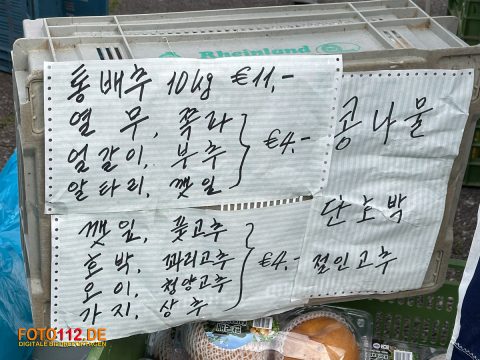 Rheinland
통배추 10kg €11,-
열무, 쪽파
얼갈이, 부추
알타리, 깻잎
€4,-
깻잎, 풋고추
호박, 꽈리고추
오이, 청양고추
가지, 상추
€4,-
콩나물
단호박
절인고추
FOTO112.DE